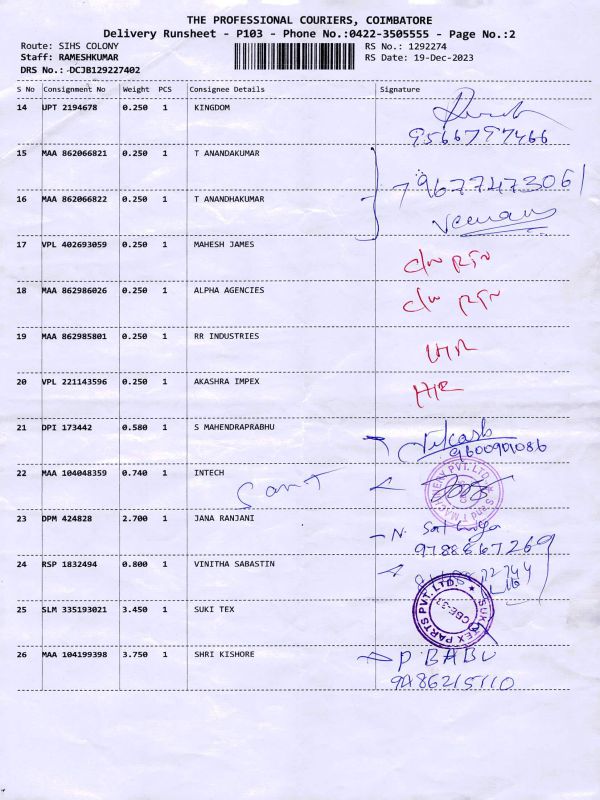 THE PROFESSIONAL COURIERS, COIMBATORE
Delivery Runsheet - P103 - Phone No.:0422-3505555 - Page No.:2
Route: SIHS COLONY
RS No.: 1292274
Staff: RAMESHKUMAR
RS Date: 19-Dec-2023
DRS No.: DCJB129227402
S No Consignment No Weight PCS Consignee Details Signature
14 UPT 2194678 0.250 1 KINGDOM
9566797466
15 MAA 862066821 0.250 1 T ANANDAKUMAR
9677473061
16 MAA 862066822 0.250 1 T ANANDHAKUMAR
17 VPL 402693059 0.250 1 MAHESH JAMES
C/w RTN
18 MAA 862986026 0.250 1 ALPHA AGENCIES
C/w RTN
19 MAA 862985801 0.250 1 RR INDUSTRIES
20 VPL 221143596 0.250 1 AKASHRA IMPEX
21 DPI 173442 0.580 1 S MAHENDRAPRABHU Vikash
9600909086
22 MAA 104048359 0.740 1 INTECH
S and T MACHINERY PVT. LTD.
23 DPM 424828 2.700 1 JANA RANJANI
9788867269
24 RSP 1832494 0.800 1 VINITHA SABASTIN
25 SLM 335193021 3.450 1 SUKI TEX
PARTS PVT. LTD.
26 MAA 104199398 3.750 1 SHRI KISHORE P BABU
9486215110